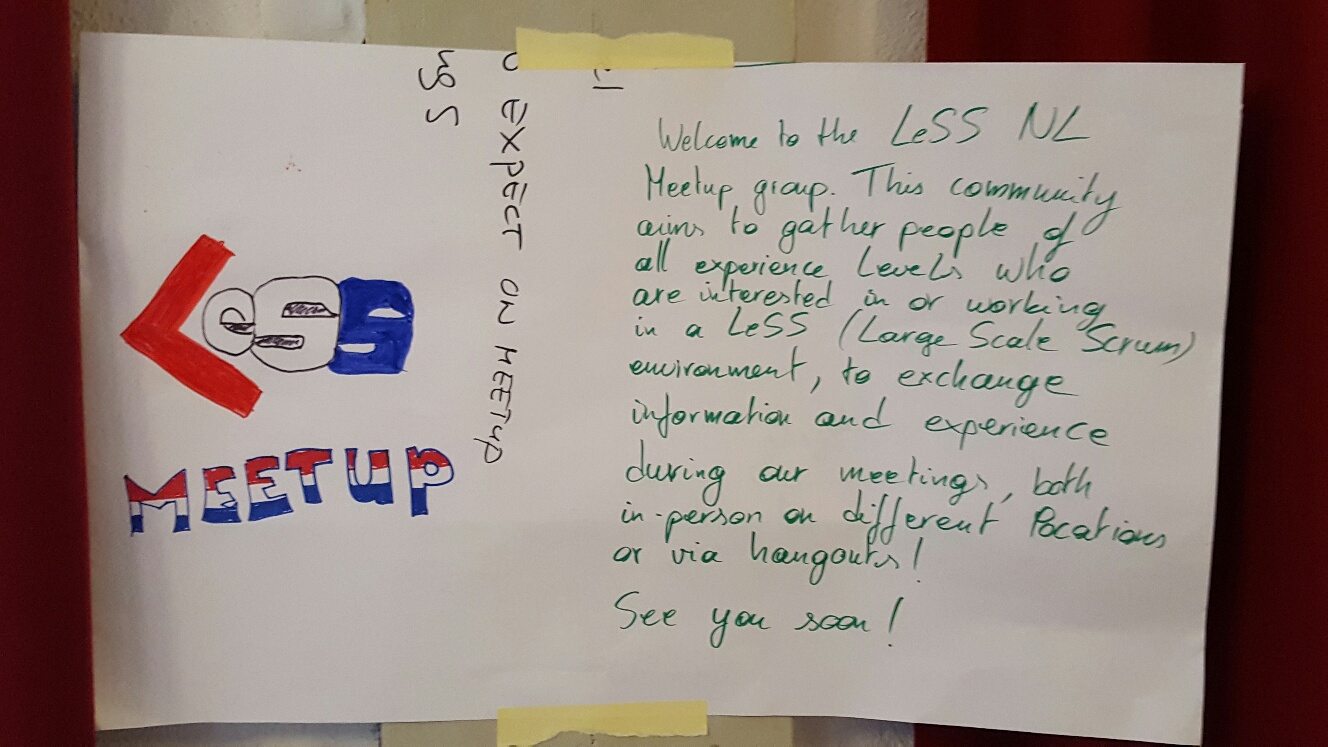 LeSS
MEETUP
EXPECT ON MEETUP
ngs
Welcome to the LeSS NL
Meetup group. This community
aims to gather people of
all experience Levels who
are interested in or working
in a LeSS (Large Scale Scrum)
environment, to exchange
information and experience
during our meetings, both
in-person on different locations
or via hangouts!
See you soon!